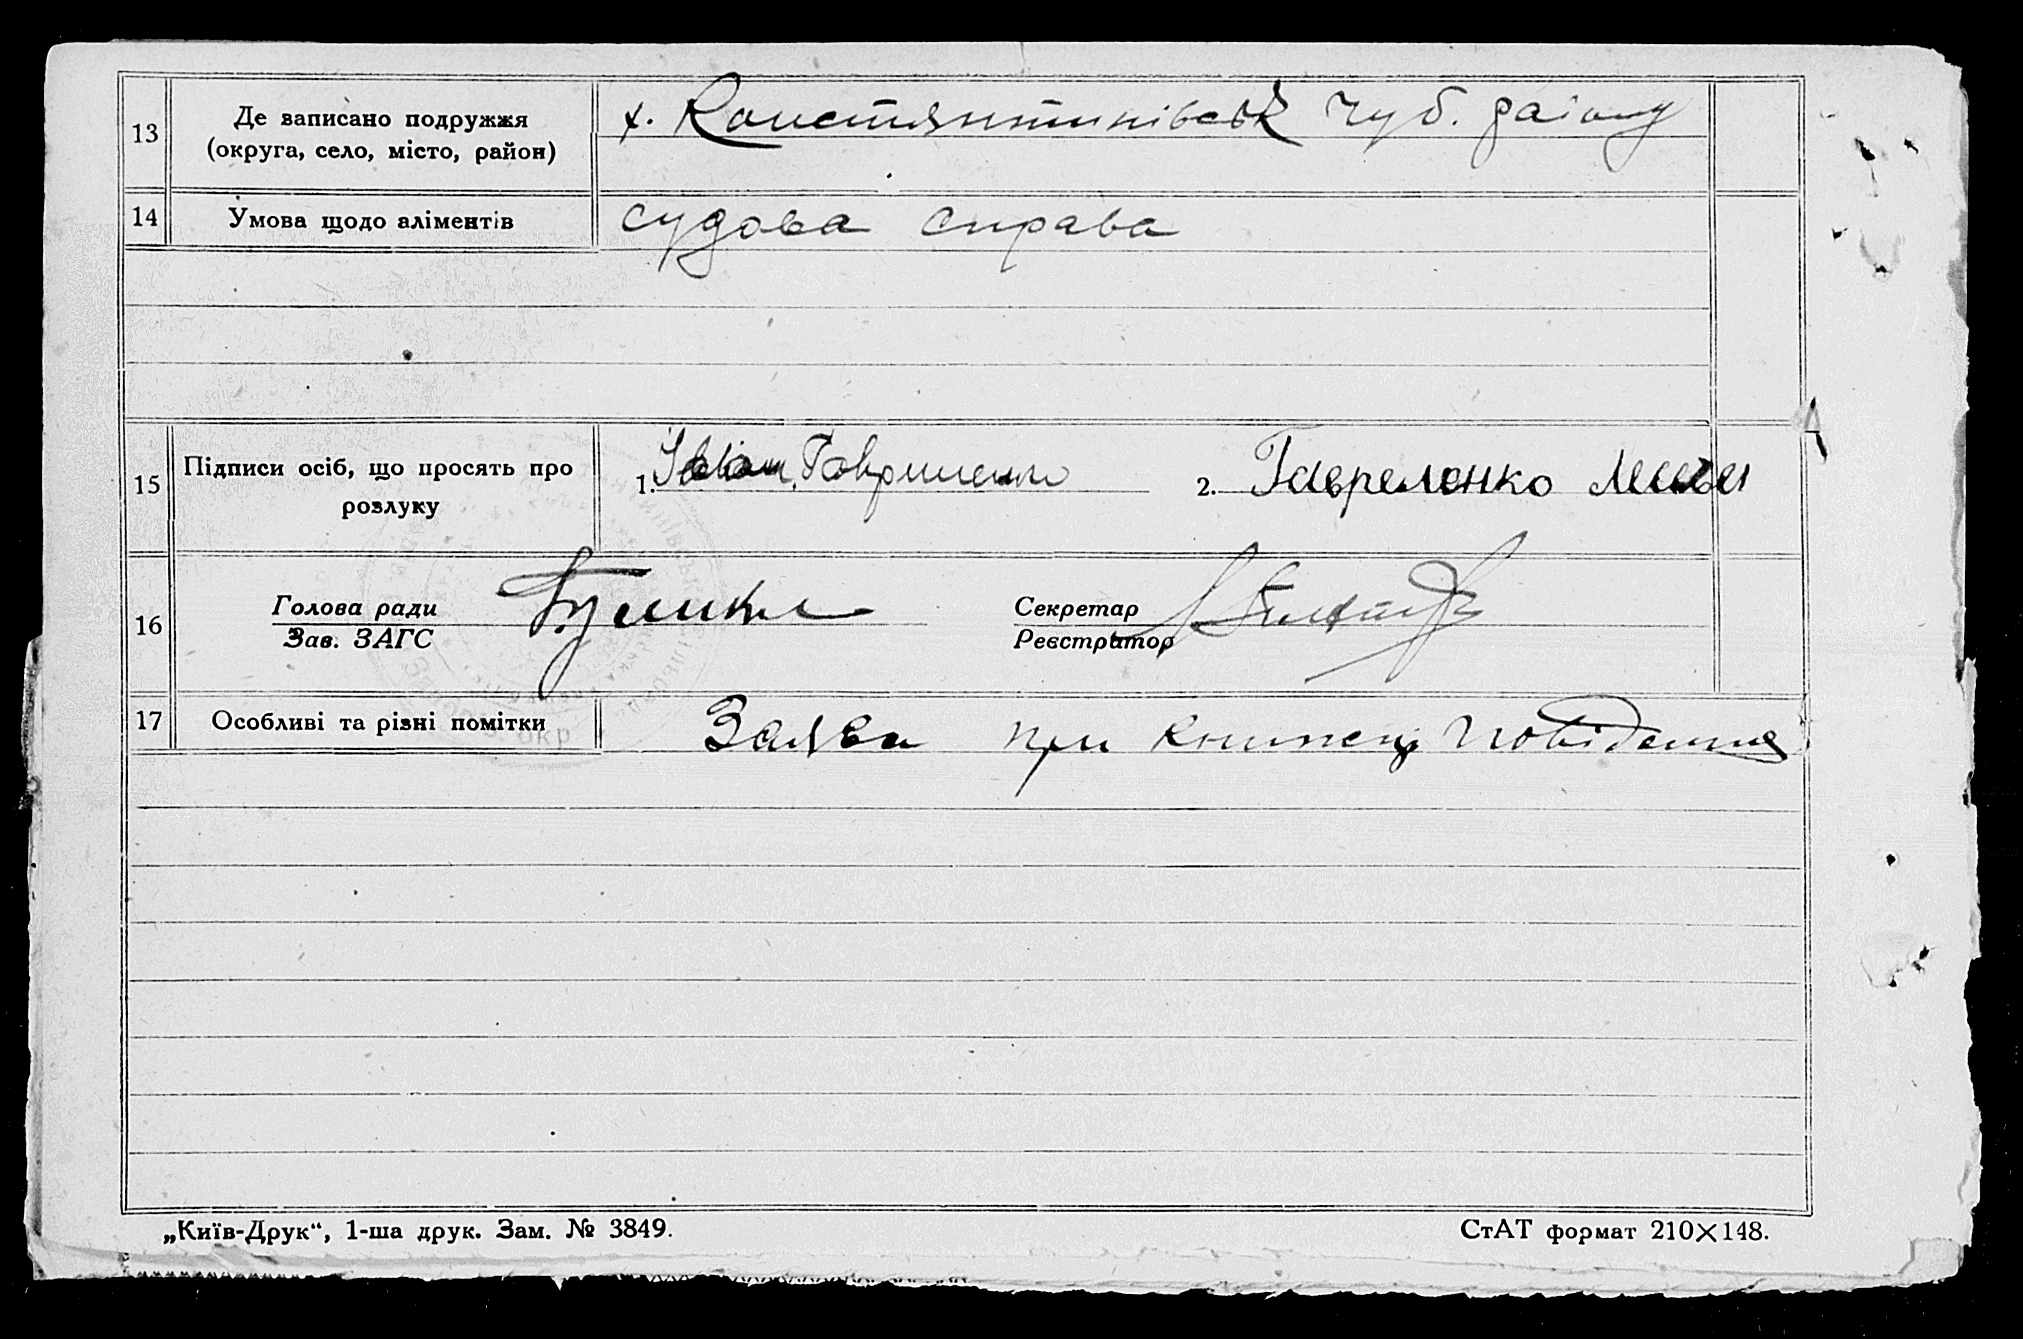 13 Де записано подружжя х. Константинівськ Чуб. району
(округа, село, місто, район)
14 Умова щодо аліментів судова справа
15 Підписи осіб, що просять про розлуку 1. Іван Гавриленко 2. Гавреленко
16 Голова ради Секретар
Зав. ЗАГС Реєстратор
17 Особливі та різні помітки Заява при книжці
„Київ-Друк“, 1-ша друк. Зам. № 3849.
СтАТ формат 210×148.